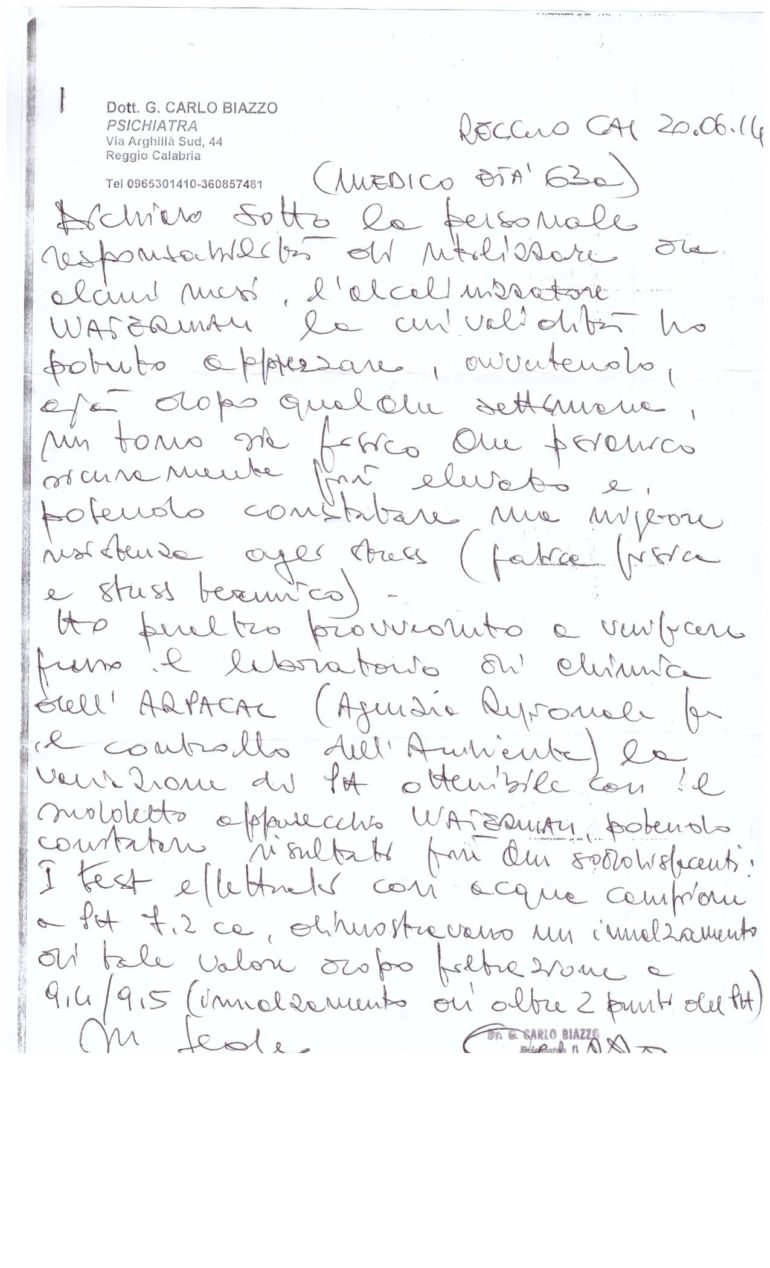 Dott. G. CARLO BIAZZO
PSICHIATRA
Via Arghillà Sud, 44
Reggio Calabria
Tel 0965301410-360857481
REGGIO CAL 20.06.14
(MEDICO ETA' 63a)
Dichiaro sotto la personale
responsabilità di utilizzare da
alcuni mesi, l'alcalinizzatore
WATERMAN la cui validità ho
potuto apprezzare, avvertendo,
già dopo qualche settimana,
un tono sia fisico che psichico
sicuramente più elevato e,
potendo constatare una miglior
resistenza agli stress (fatica fisica
e stress termico) -
Ho peraltro provveduto a verificare
presso il laboratorio di chimica
dell'ARPACAL (Agenzia Regionale per
il controllo dell'Ambiente) la
variazione di PH ottenibile con il
suddetto apparecchio WATERMAN, potendo
constatare risultati più che soddisfacenti:
I test effettuati con acqua campione
a PH 7.2 ca, dimostravano un innalzamento
di tale valore dopo filtrazione a
9,4/9,5 (innalzamento di oltre 2 punti del PH)
In fede
Dr. G. CARLO BIAZZO